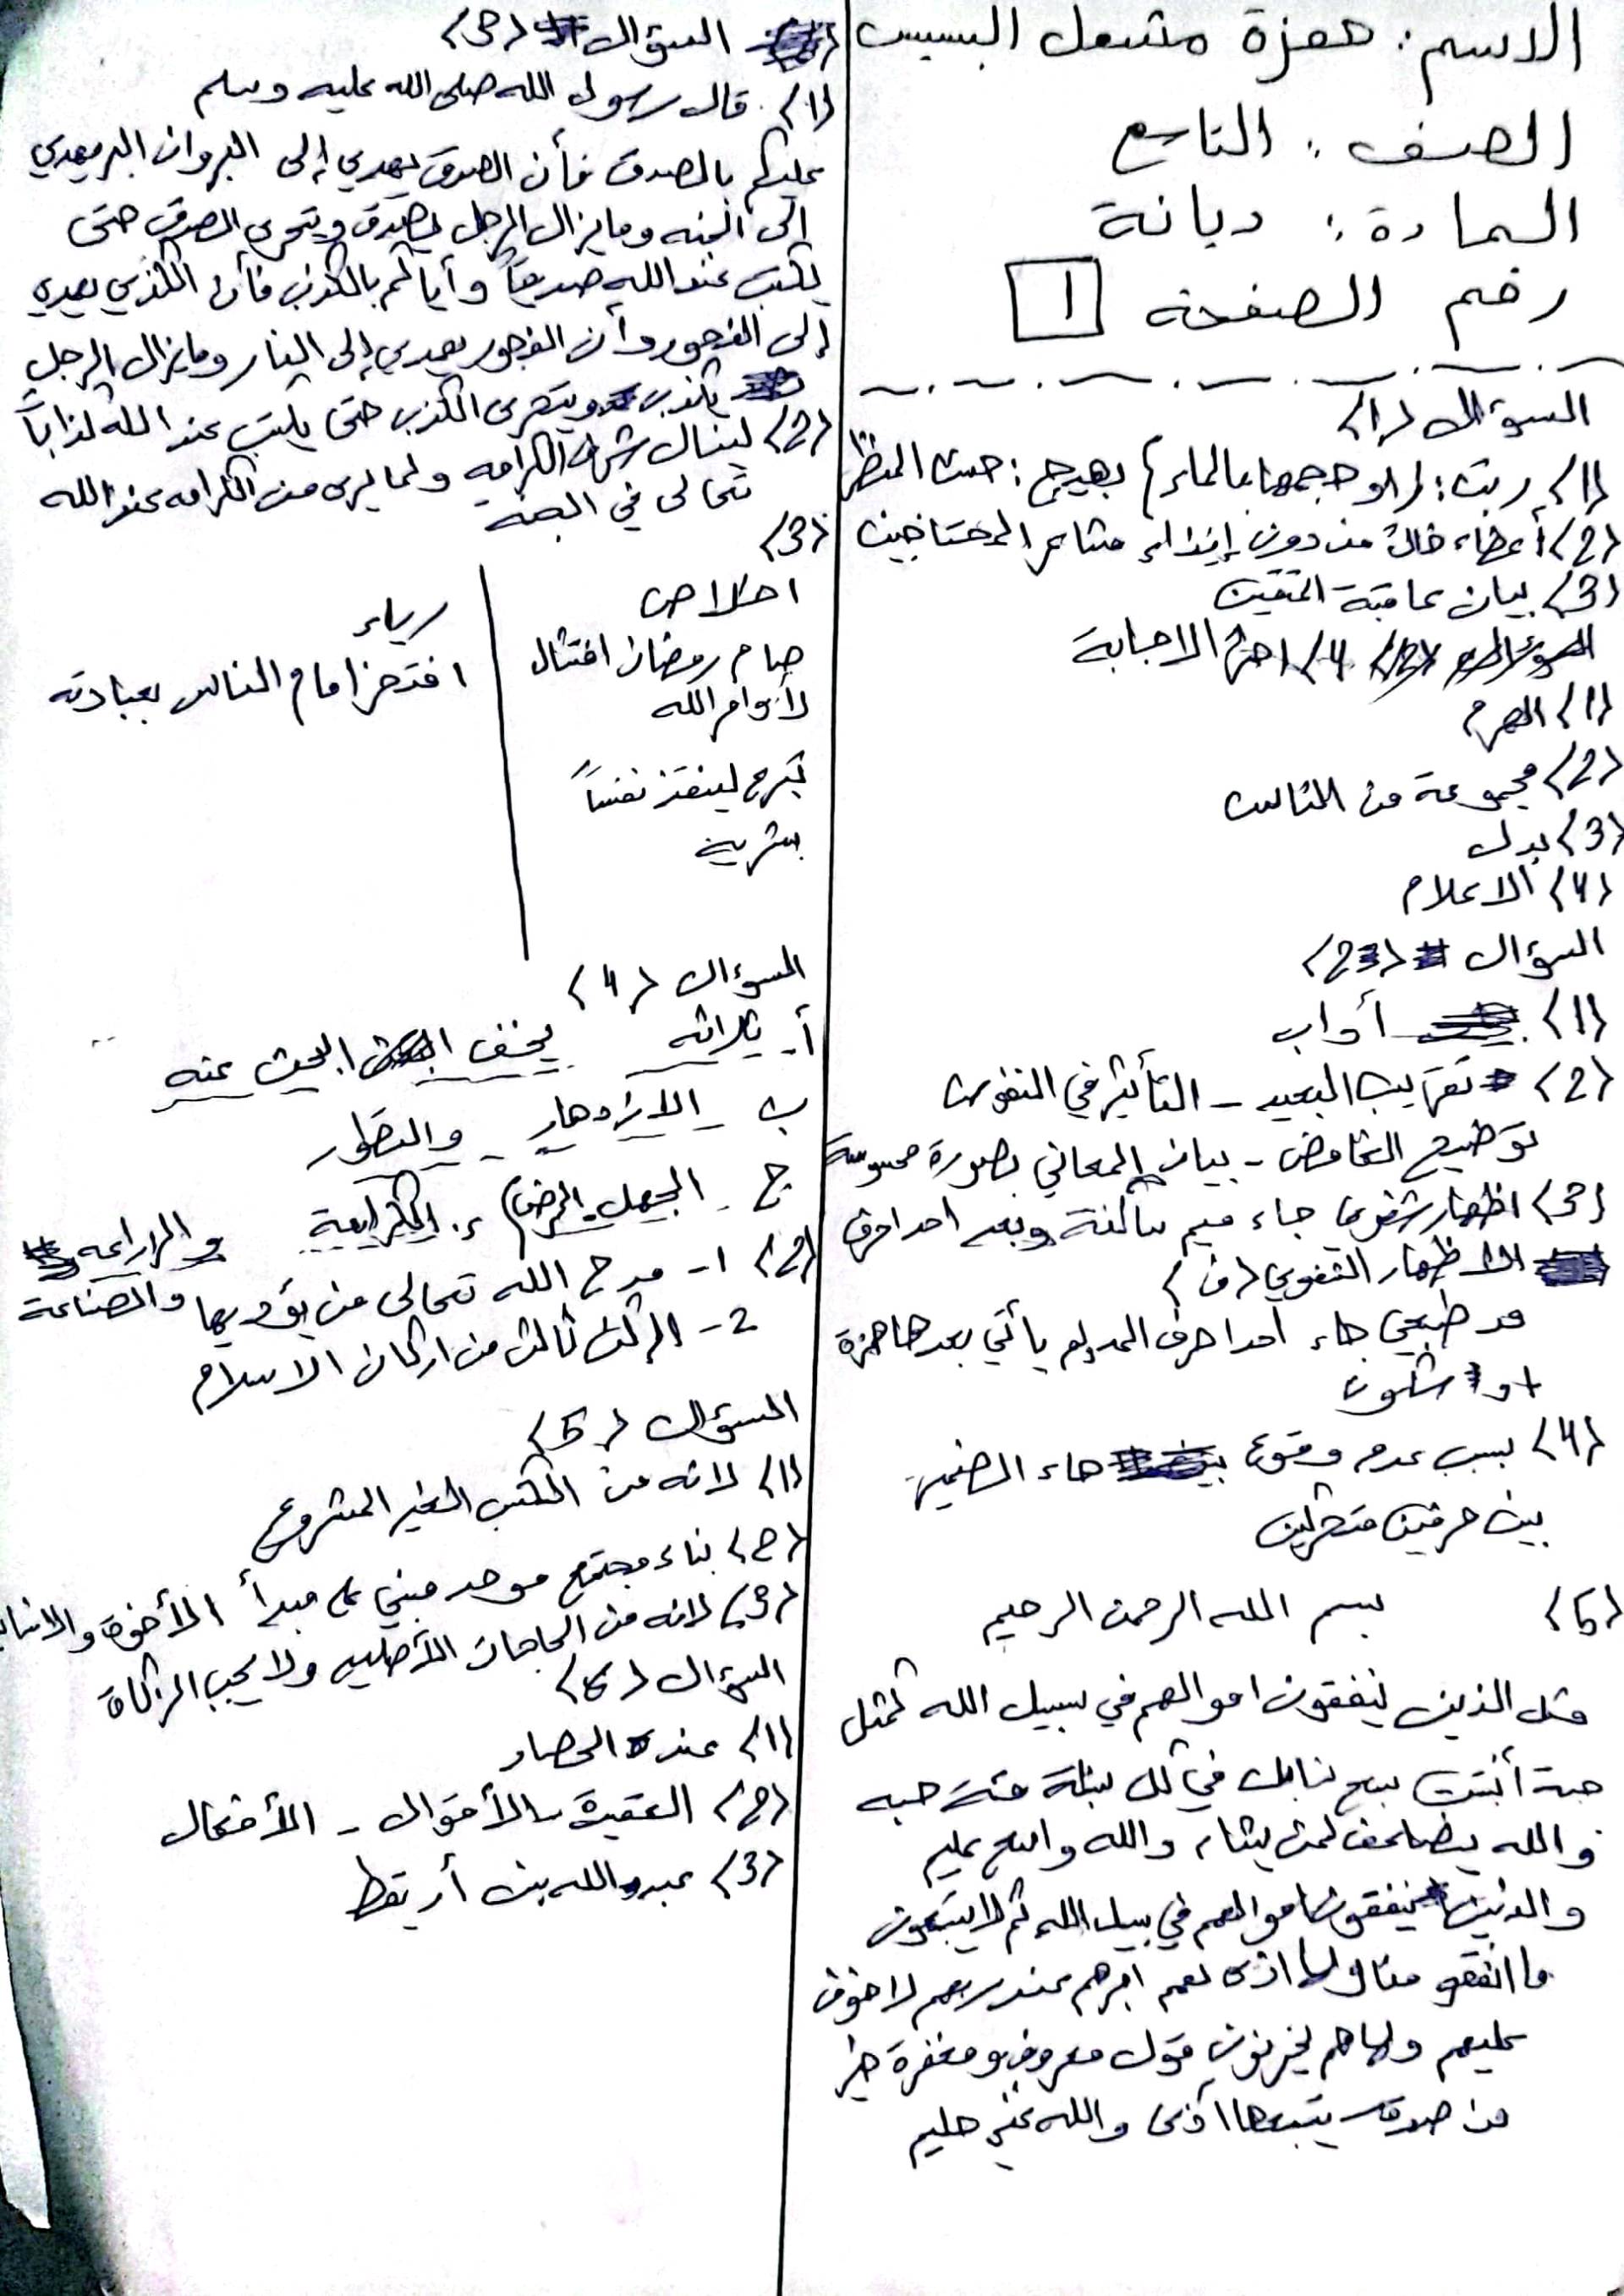 الاسم: حمزة مشعل البسيس
الصف: التاسع
المادة: ديانة
رقم الصفحة 1
السؤال (1)
(1) ربت: زاد حجمها بالماء بهيج: حسن المنظر
(2) أعطاء ذلك من دون إيذاء مشاعر المحتاجين
(3) بيان عاقبة المتقين
(4) اختر الاجابة
(1) الهرم
(2) مجموعة من الناس
(3) بدل
(4) الاعلام
السؤال (2)
(1) أداب
(2) تقريب البعيد - التأثير في النفوس
توضيح الغامض - بيان المعاني بصورة محسوسة
(3) اظهار شفوي جاء ميم ساكنة وبعد احد احرف
الاظهار الشفوي (ف)
مد طبيعي جاء أحد احرف المد ولم يأتي بعدها همزة
او سكون
(4) بسبب عدم وقوع هاء الضمير
بين حرفين متحركين
(5) بسم الله الرحمن الرحيم
مثل الذين ينفقون اموالهم في سبيل الله كمثل
حبة أنبتت سبع سنابل في كل سنبلة مئة حبه
والله يضاعف لمن يشاء والله واسع عليم
والذين ينفقون اموالهم في سبيل الله ثم لا يتبعون
ما انفقو منا ولا اذى لهم اجرهم عند ربهم لا خوف
عليهم ولا هم يحزنون قول معروف ومغفرة خير
من صدقه يتبعها أذى والله غني حليم
السؤال (3)
(1) قال رسول الله صلى الله عليه وسلم
عليكم بالصدق فأن الصدق يهدي إلى البر وان البر يهدي
الى الجنه وما يزال الرجل يصدق ويتحرى الصدق حتى
يكتب عند الله صديقاً وأياكم بالكذب فأن الكذب يهدي
إلى الفجور وأن الفجور يهدي إلى النار وما يزال الرجل
يكذب ويتحرى الكذب حتى يكتب عند الله كذاباً
(2) لينال شرف الكرامه ولما يرى من الكرامه عند الله
تعالى في الجنة
(3)
اخلاص رياء
صام رمضان امتثال افتخر امام الناس بعبادته
لأوامر الله
تبرع لينقذ نفساً
بشرية
السؤال (4)
أ- ثلاثه يخفف البحث عنه
ب - الازدهار - والتطور
ج - الجهل والمرض والزراعه
والصناعة
(2) 1- مدح الله تعالى من يؤديها
2- الركن ثالث من اركان الاسلام
السؤال (5)
(1) لانه من الكسب الغير المشروع
(2) بناء مجتمع موحد مبني على مبدأ الأخوة
(3) لانه من الحاجات الأصليه ولا يجب الزكاة
السؤال (6)
(1) عند الحصاد
(2) العقيدة - الأقوال - الأفعال
(3) عبد الله بن أريقط